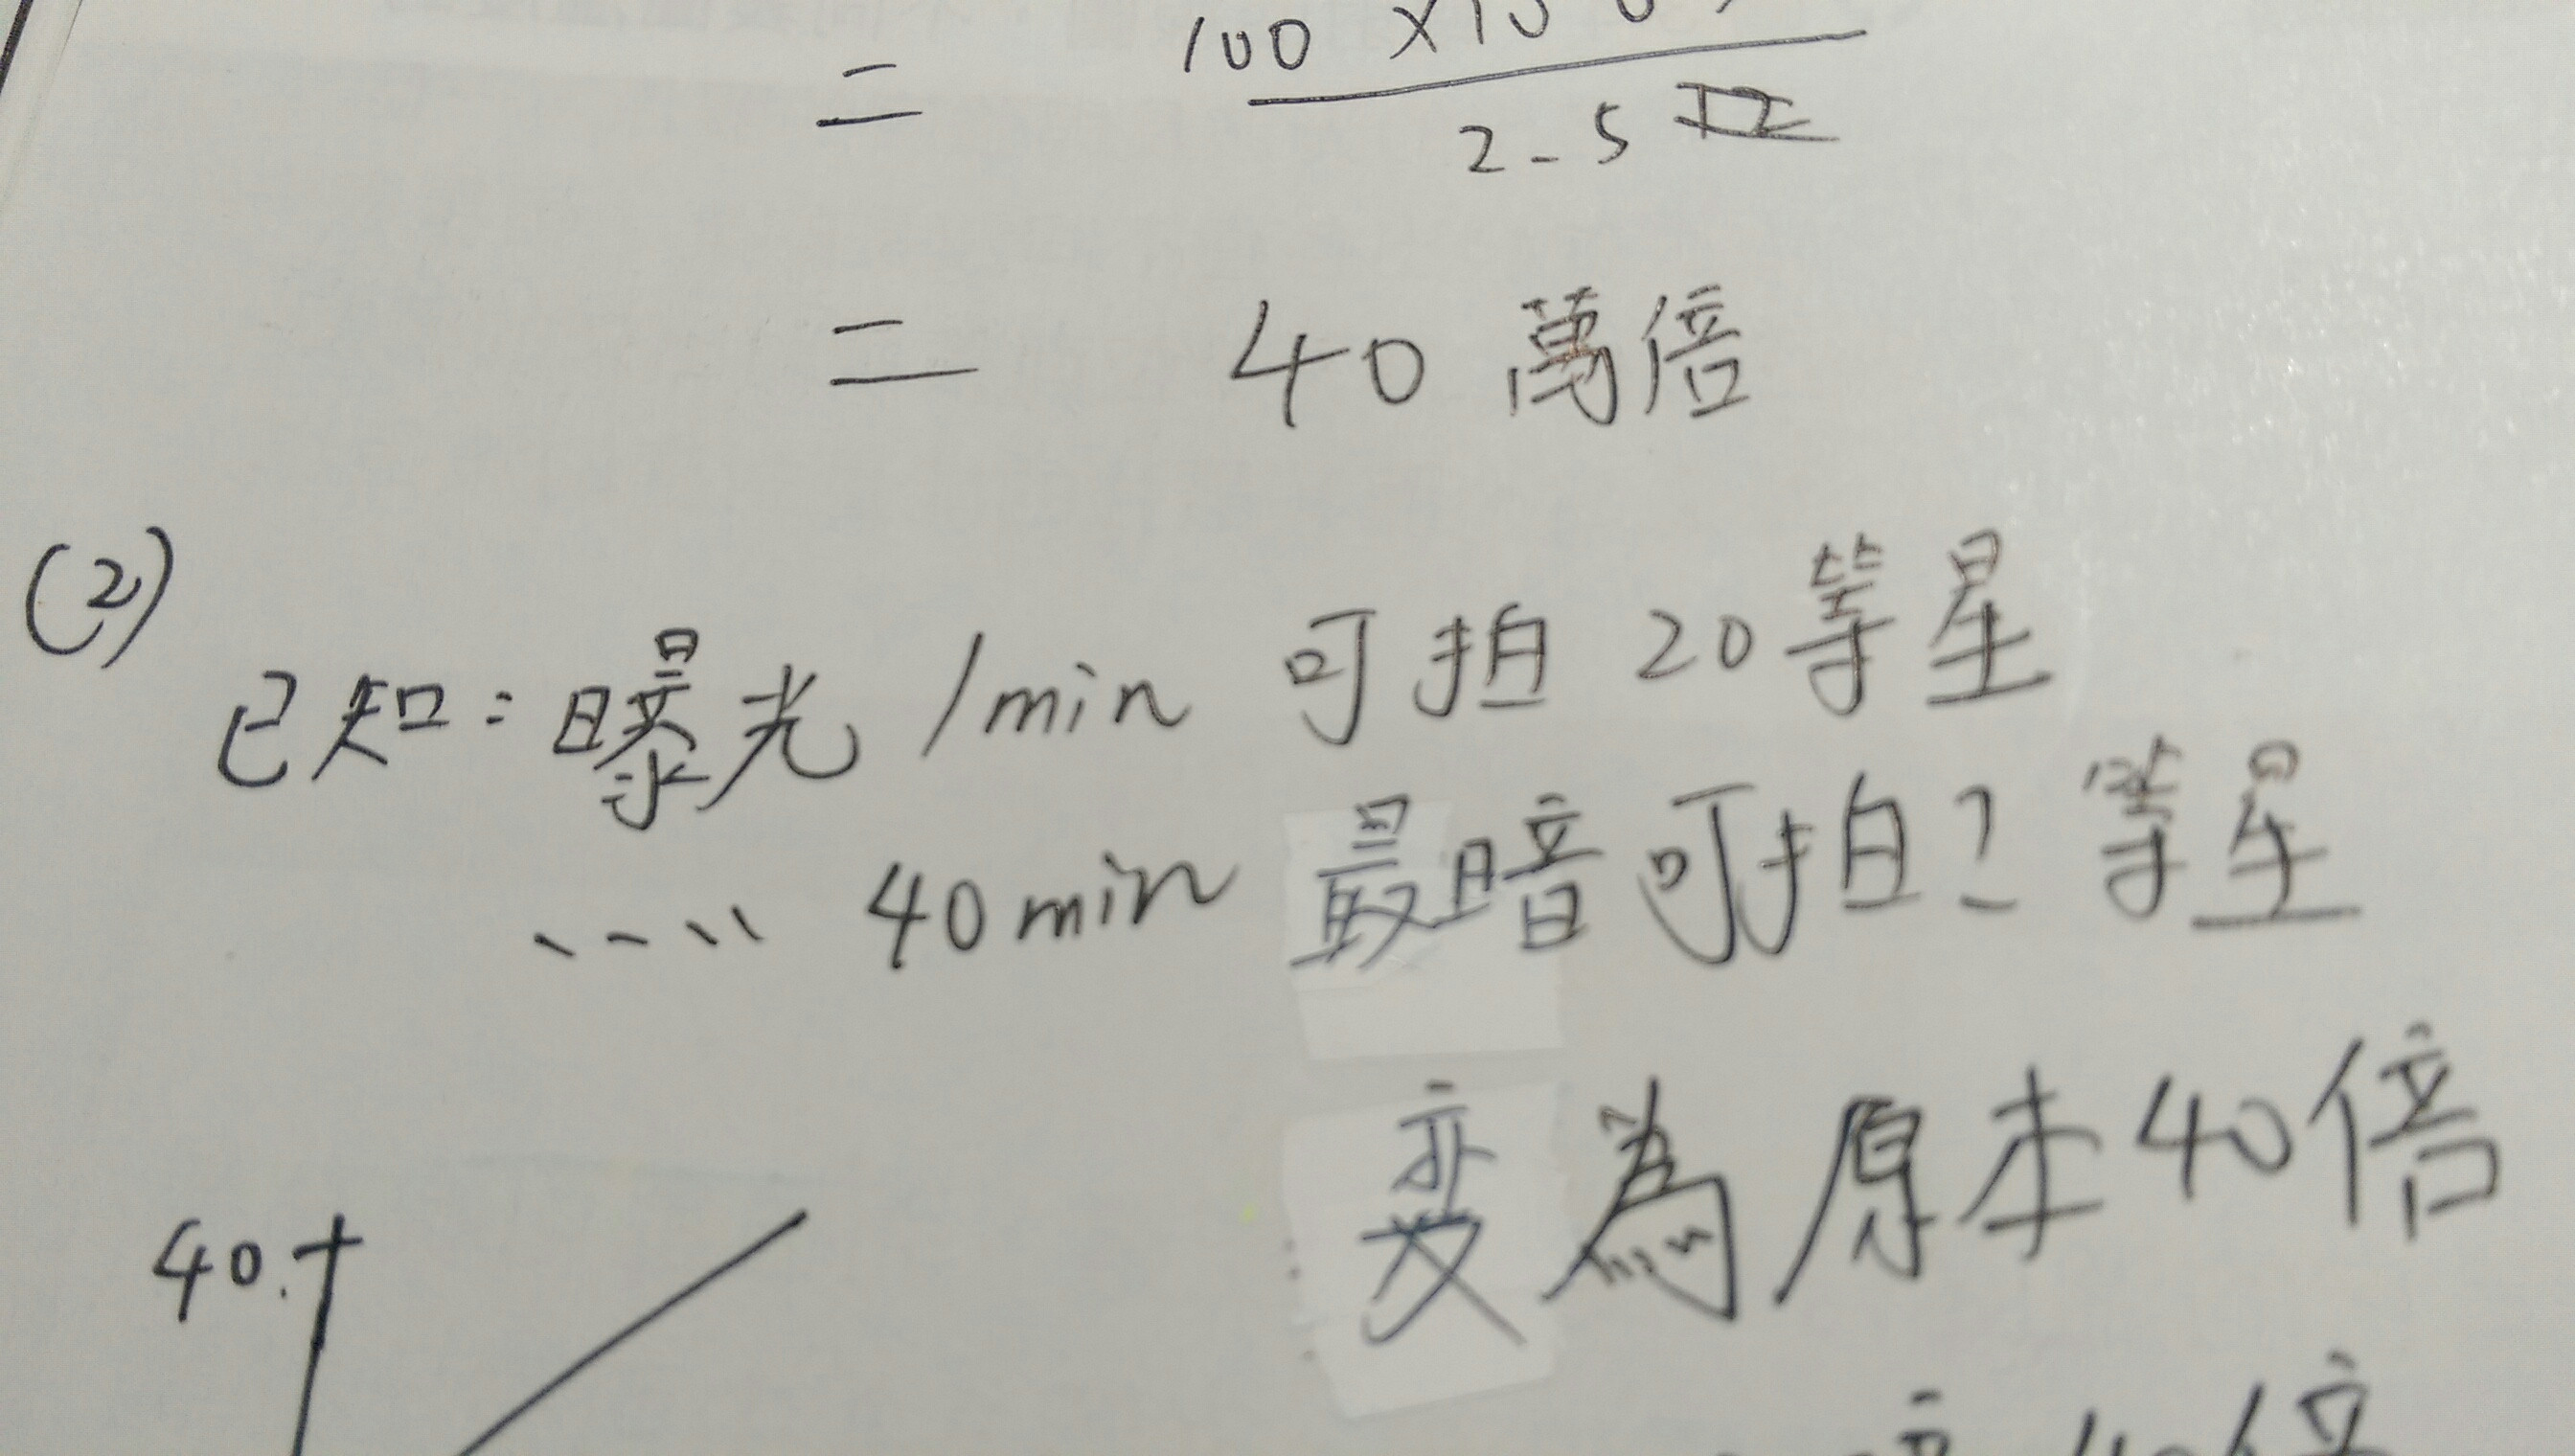 100 ×10
=
2.5
= 40 萬倍
(2)
已知：曝光 1min 可拍 20等星
‥‥ 40min 最暗可拍? 等星
変為原本40倍
40